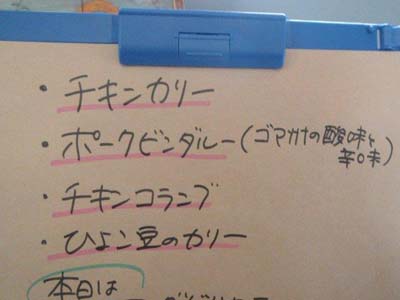 ・チキンカリー
・ポークビンダルー(ゴマカナの酸味と
辛味)
・チキンコランブ
・ひよこ豆のカリー
本日は